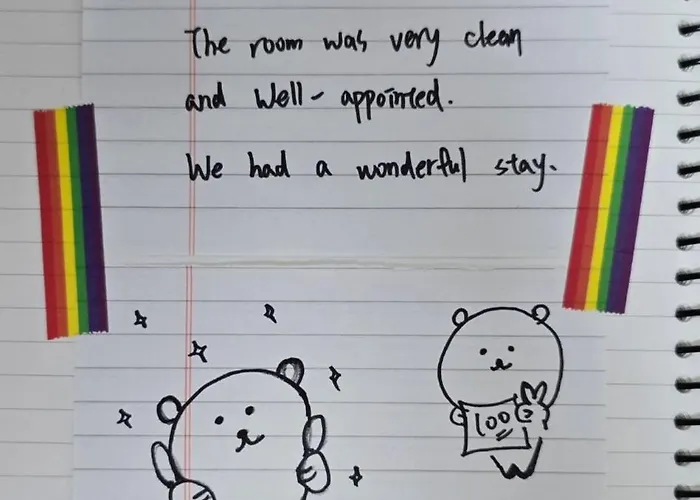 The room was very clean
and well- appointed.
We had a wonderful stay.
100